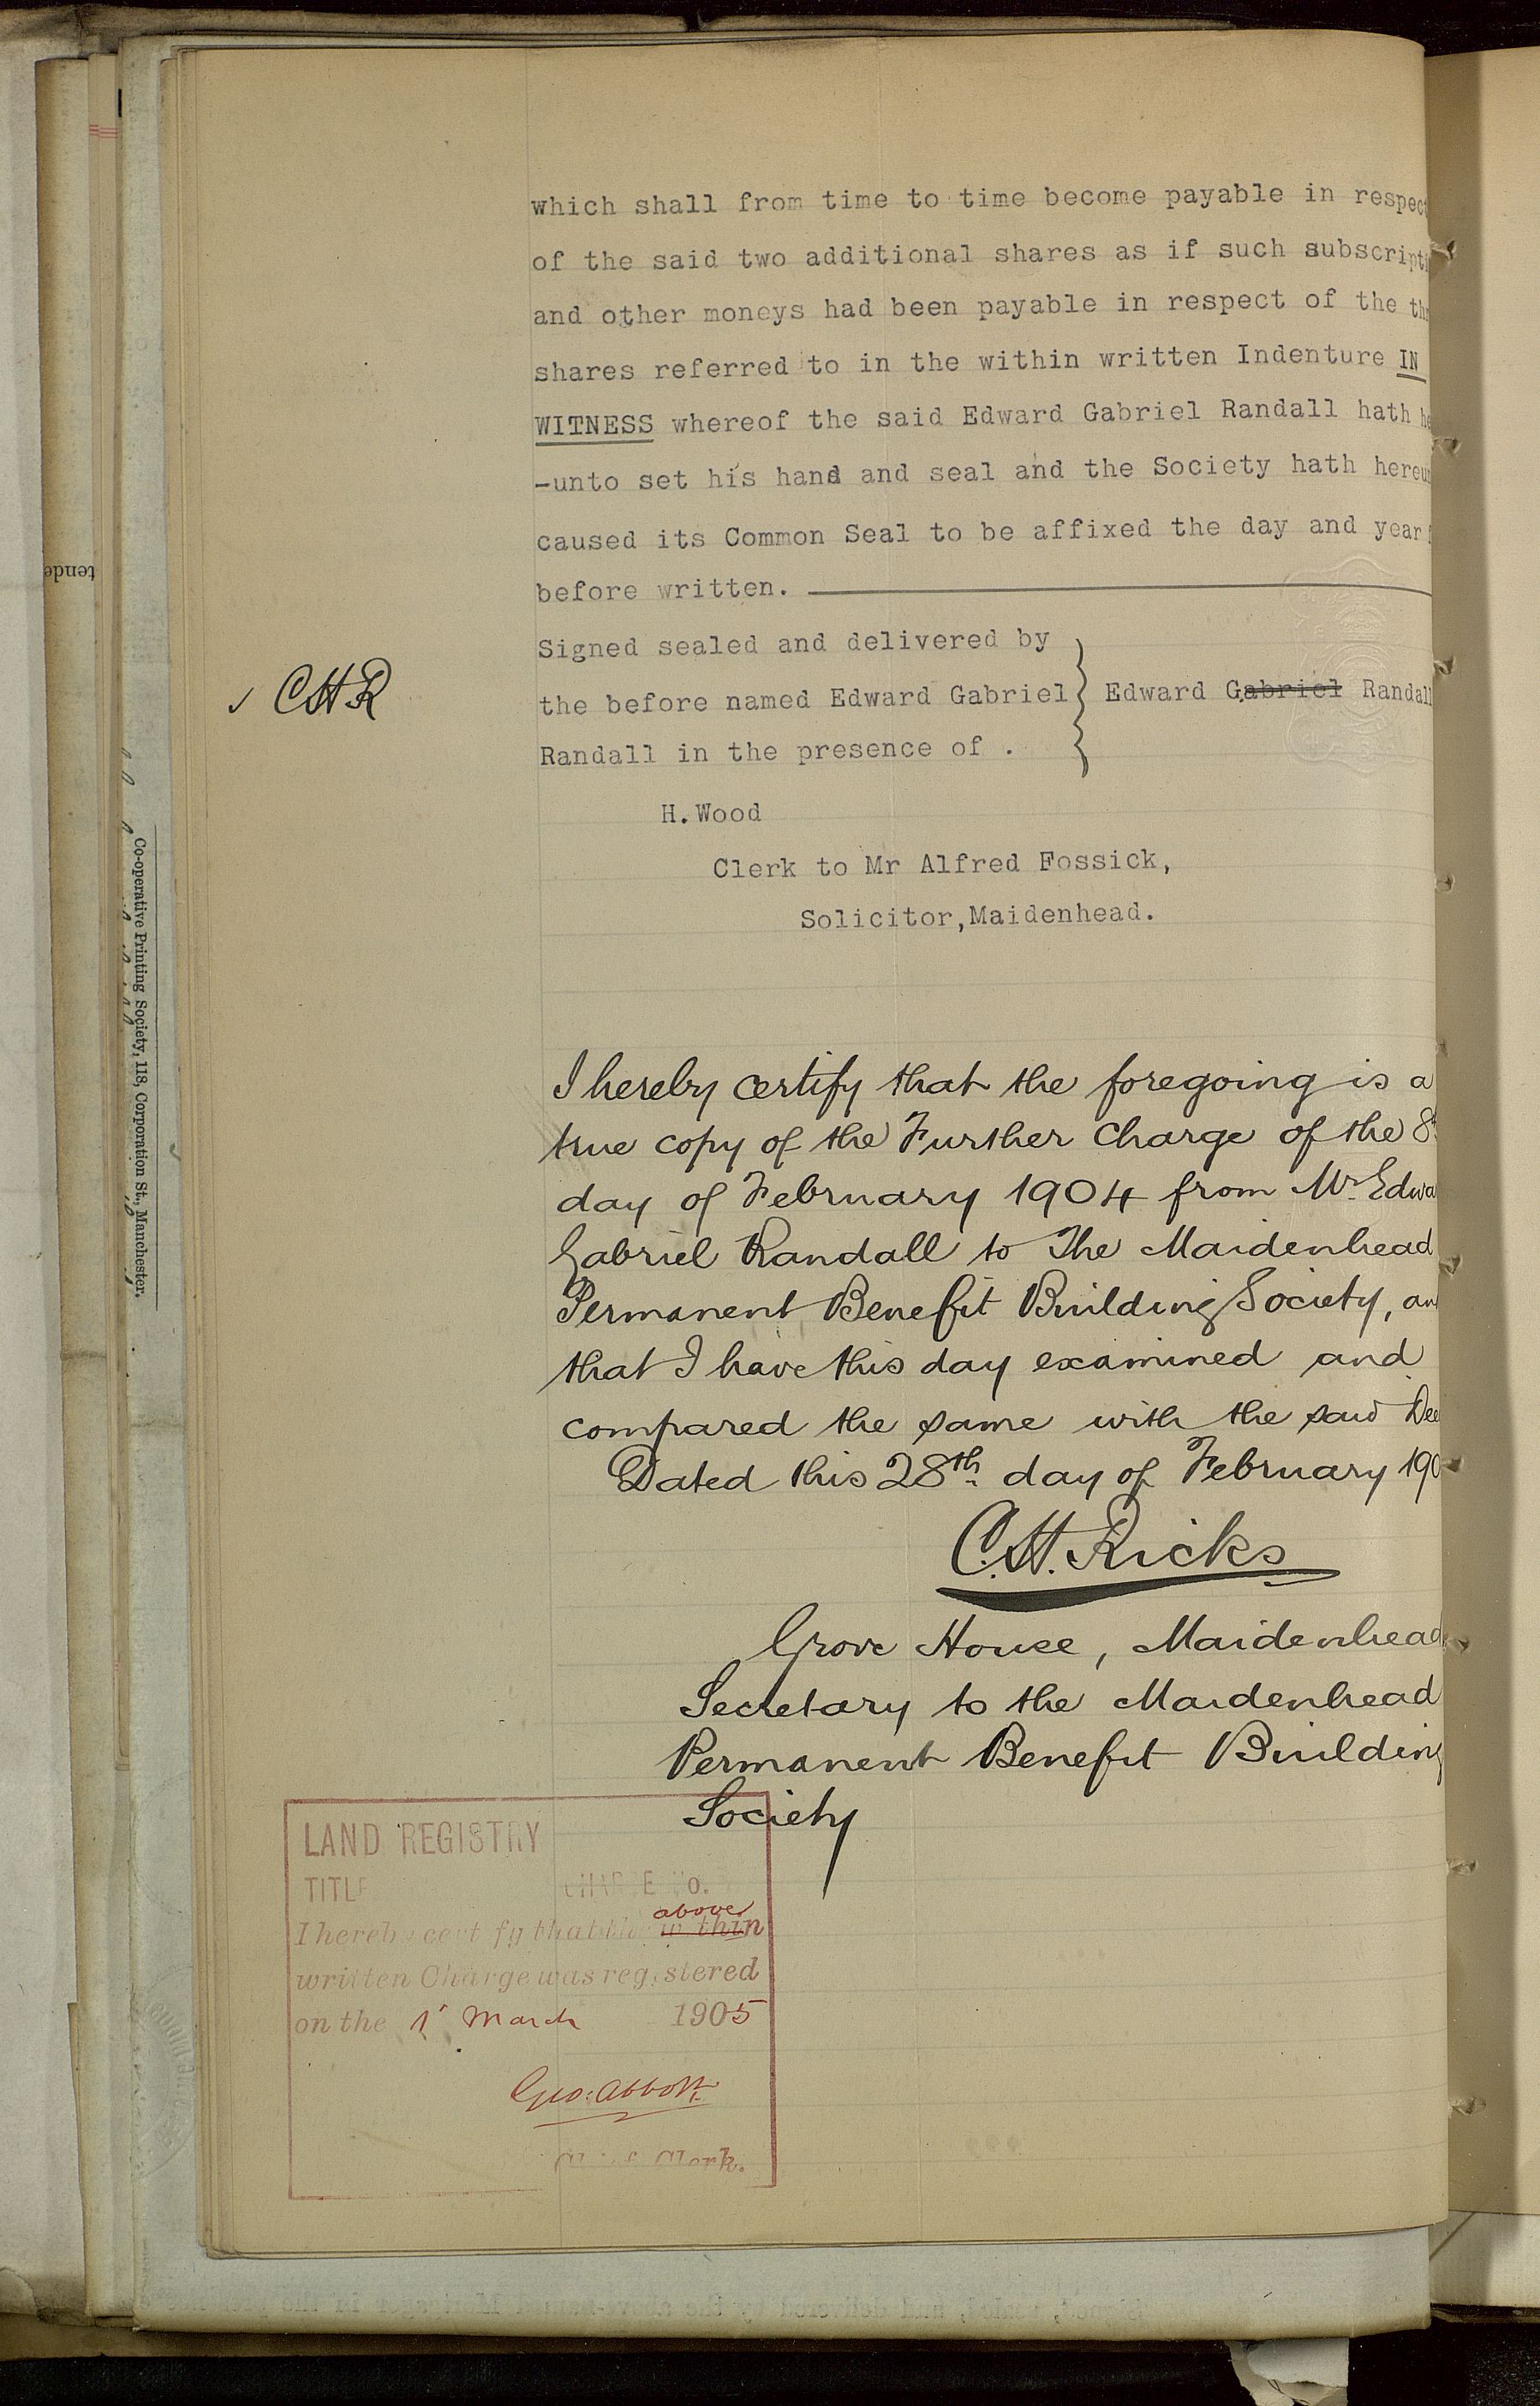 which shall from time to time become payable in respec
of the said two additional shares as if such subscripti
and other moneys had been payable in respect of the th
shares referred to in the within written Indenture IN
WITNESS whereof the said Edward Gabriel Randall hath he
-unto set his hand and seal and the Society hath hereu
caused its Common Seal to be affixed the day and year
before written.
Signed sealed and delivered by
the before named Edward Gabriel
Randall in the presence of .
Edward Gabriel Randall
CHR
H. Wood
Clerk to Mr Alfred Fossick,
Solicitor, Maidenhead.
I hereby certify that the foregoing is a
true copy of the Further Charge of the 8th
day of February 1904 from Mr. Edwa
Gabriel Randall to The Maidenhead
Permanent Benefit Building Society, an
that I have this day examined and
compared the same with the said Dee
Dated this 28th day of February 190
C.H. Ricks
Grove House, Maidenhead
Secretary to the Maidenhead
Permanent Benefit Building
Society
LAND REGISTRY
TITLE CHARGE No.
above
I hereby certify that the within
written Charge was registered
on the 1st March 1905
Geo: Abbott
Chief Clerk.
tende
Co-operative Printing Society, 118, Corporation St., Manchester.